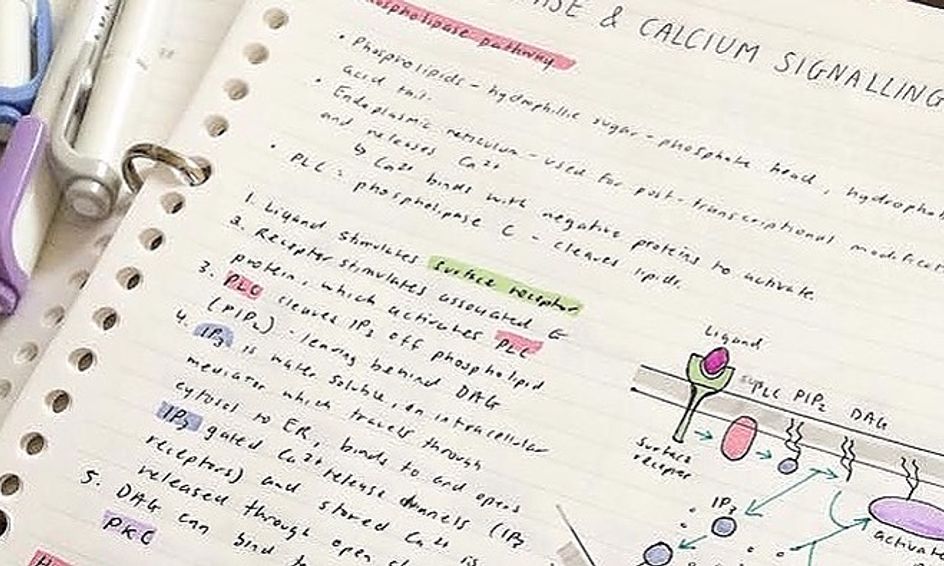 & CALCIUM SIGNALLING
phospholipase pathway
• Phospholipids - hydrophillic sugar - phosphate head, hydropho
acid tail.
• Endoplasmic reticulum - used for post-transcriptional modificat
and releases Ca²⁺
↳ Ca²⁺ binds with negative proteins to activate.
• PLC = phospholipase C - cleaves lipids.
1. Ligand stimulates surface receptor
2. Receptor stimulates associated G
protein, which activates PLC
3. PLC cleaves IP₃ off phospholipid
(PIP₂) - leaving behind DAG
4. IP₃ is water soluble, an intracellular
mediator which travels through
cytosol to ER, binds to and opens
IP₃ gated Ca²⁺ release channels (IP₃
receptors) and stored Ca²⁺ is
released through open
5. DAG can bind to
PKC
Ligand
PLC PIP₂ DAG
surface
recepter
IP₃
activate